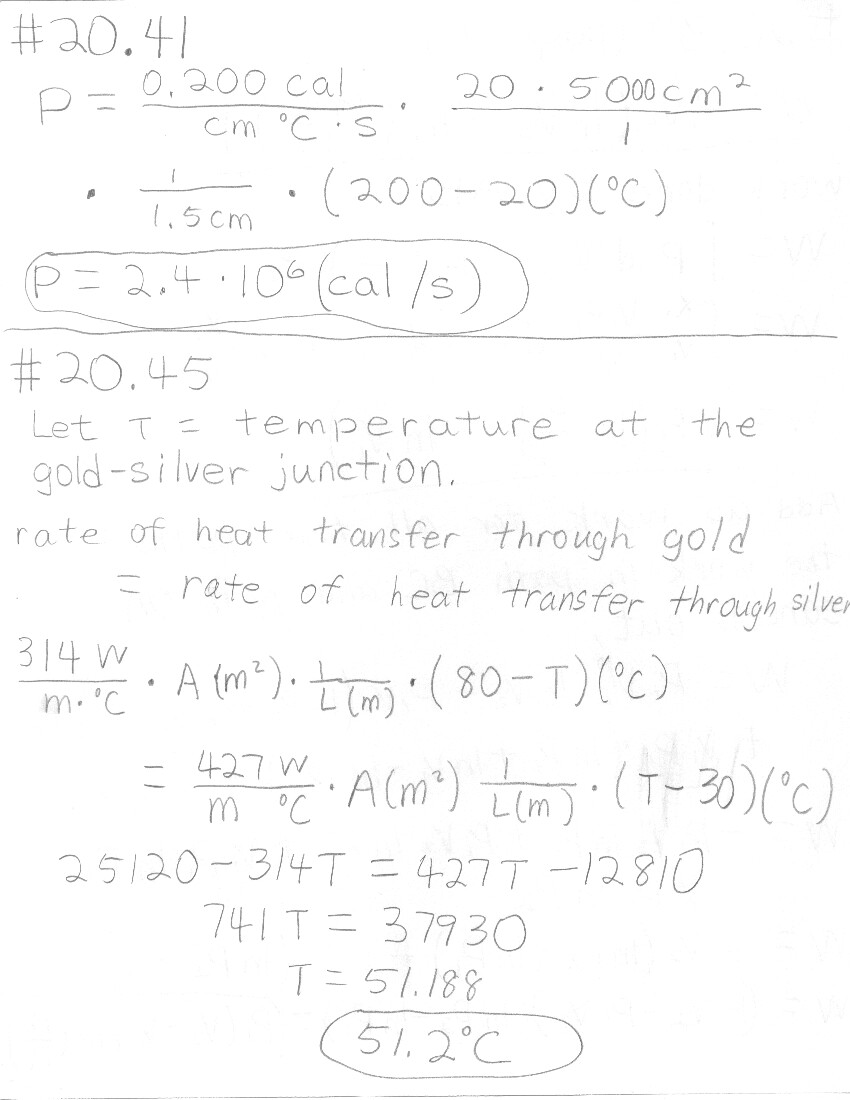 #20.41
P = 0.200 cal / cm °C · s · 20 · 5000cm² / 1
· 1 / 1.5cm · (200 - 20)(°C)
P = 2.4 · 10⁶ (cal /s)
#20.45
Let T = temperature at the
gold-silver junction.
rate of heat transfer through gold
= rate of heat transfer through silver
314 W / m · °C · A (m²) · 1 / L(m) · (80 - T)(°C)
= 427 W / m °C · A(m²) 1 / L(m) · (T - 30)(°C)
25120 - 314T = 427T - 12810
741 T = 37930
T = 51.188
51.2°C